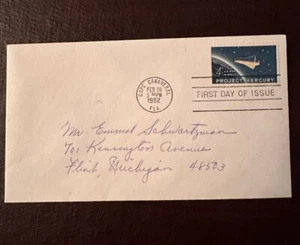 CAPE CANAVERAL
FEB 20
1962
FLA.
4¢
PROJECT MERCURY
FIRST DAY OF ISSUE
Mr. Emmet Schwartzman
701 Kensington Avenue
Flint, Michigan 48503